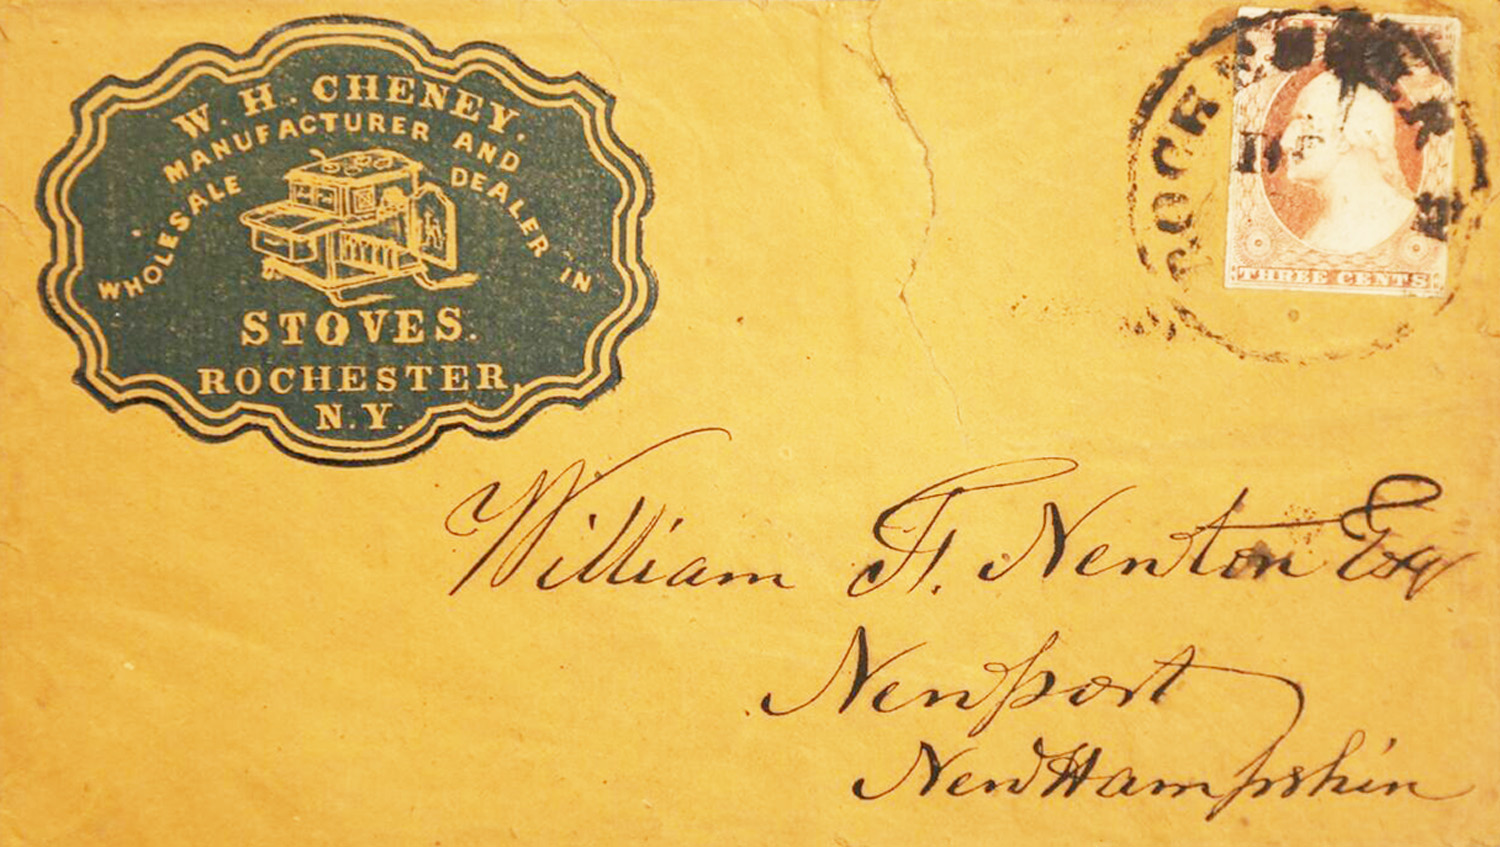 W. H. CHENEY.
MANUFACTURER AND
WHOLESALE DEALER IN
STOVES.
ROCHESTER,
N.Y.
ROCHESTER
THREE CENTS
William F. Newton Esq
Newport
New Hampshire